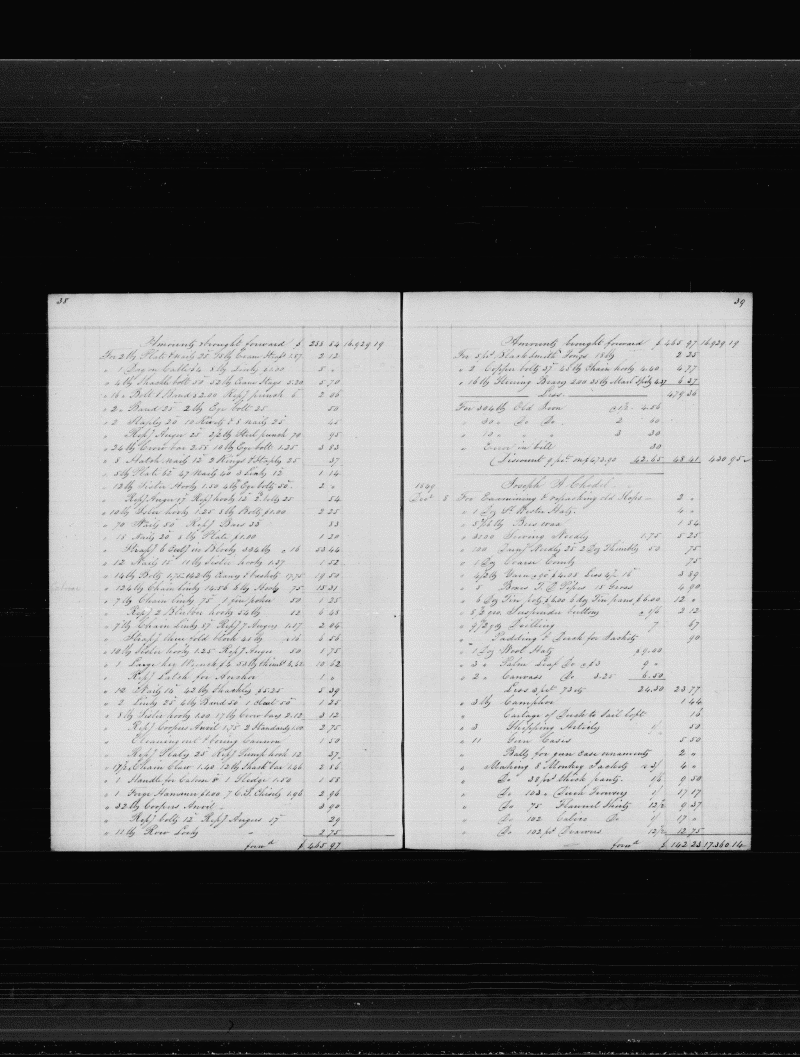 38
Amounts brought forward $ 233 54 16.929 19
For 2 lb Plate & Nails 25 lb Crow 1.87 2 12
" 1 Dog on Cable 64 8 lb Links $1.00 5 "
" 4 lb Shackle bolt 50 52 lb Crane Stage 5.20 5 70
" 16 " Bolt & Band $2.00 Repg punch 6 2 06
" 2 " Band 25 2 lb Eye bolt 25 50
" 2 Staples 20 10 Rivets & 8 Nails 25 45
" Repg Auger 25 2/2 lb Steel punch 70 95
" 24 lb Crow bar 2.58 10 lb Eye bolt 1.25 3 83
" 8 Hatch Nails 12 2 Rings & Staples 25 37
" 8 lb Plate 62 47 Nails 40 3 Links 12 1 14
" 12 lb Sister Hooks 1.50 4 lb Eye bolts 50 2 "
" Repg Auger 17 Repg hooks 12 2 bolts 25 54
" 10 lb Sister hooks 1.25 8 lb Bolts $1.00 2 25
" 70 Nails 50 Repg Bars 33 83
" 15 Nails 20 8 lb Plate $1.00 1 20
" Strapg 6 Blocks 334 lb " 16 53 44
" 12 Nails 15 11 lb Sister hooks 1.37 1 52
" 14 lb Bolts 1.75 142 lb Cranes & buckets 17.75 19 50
" 124 lb Chain Links 14.56 6 lb Hooks 75 15 31
" 7 lb Chain Links 75 1 gin poker 50 1 25
" Repg 2 Blubber hooks 54 lb 12 6 48
" 7 lb Chain Links 87 Repg 7 Augers 1.17 2 04
" Strapg three fold block 41 lb " 16 6 56
" 10 lb Sister hooks 1.25 Repg Auger 50 1 75
" 1 Large key Wrench $2 33 lb thimb 8.62 10 62
" Repg Latch for Anchor 1 "
" 12 Nails 14 42 lb Shackles $5.25 5 39
" 2 Links 25 4 lb Band 50 1 Steel 50 1 25
" 8 lb Sister hooks 1.00 17 lb Crow bars 2.12 3 12
" Repg Coopers Anvil 1.75 2 Standards 1.00 2 75
" Cleaning out & boring Cannon 1 50
" Repg Skates 25 Repg Pump hook 12 37
" 17/2 " Chain Claw 1.40 12 lb Shack bar 1.46 2 86
" 1 Handle for Caboose 8 1 Sledge 1.50 1 58
" 1 Forge Hammer $1.00 7 C.S. Chisels 1.96 2 96
" 32 lb Coopers Anvil 3 90
" Repg bolts 12 Repg Augers 17 29
" 11 lb Row Locks " 2 75
forwd $ 465 97
39
Amounts brought forward $ 465 97 16929 19
For 5 pr Black Smith Tongs 18 lb 2 25
" 2 Copper bolts 37 45 lb Chain hooks 4.40 4 77
" 16 lb Steering Braces 2.00 35 lb Marl Spikes 4.37 6 37
Dcts. 479 36
For 304 lb Old Iron @ 1/2 4.56
" 30 " Do Do 2 60
" 10 " " " 3 30
" Error in bill 30
" Discount 9 pct on $473.90 42.65 48 41 430 95
1849
Joseph H. Chadel
Dect 8 For Examining & repacking old Slops 2 "
" 1 Dz So Wester Hats 4 "
" 5 1/2 lb Bees wax 1 54
" 3500 Sewing Needles 1.75 5 25
" 100 Darng Needles 25 2 Dz Thimbles 50 75
" 1 Dz Coarse Combs 75
" 4/2 lb Yarn @ 90 $4.05 Less 4 pc 16 3 89
" 5 Boxes T. D. Pipes 15 Gross 4 90
" 6 Dz Tin pots $6.00 6 Dz Tin pans $6.00 12 "
" 8 1/2 gro Suspender buttons @ 1/6 2 12
" 9 1/2 yds Drilling 7 67
" Padding & Duck for Jackets 90
" 1 Dz Wool Hats $9.00
" 3 " Palm Leaf Do @ $3 9 "
" 2 " Canvass Do 3.25 6.50
Less 3 pct 73 cts 24.50 23 77
" 3 lb Camphor 1 44
" Cartage of Duck to Sail loft 13
" 3 Shipping Articles 1/ 50
" 11 Gun Cases 5 50
" Balls for gun case ornaments 2 "
" Making 8 Monkey Jackets @ 3/ 4 "
" Do 38 pr thick pants 1/6 9 50
" Do 103 " Duck Trowsg 1/ 17 17
" Do 75 Flannel Shirts 12/2 9 37
" Do 102 Calico Do 1/ 17 "
" Do 102 pr Drawers 12/2 12 75
forwd $ 142 23 17.360 14